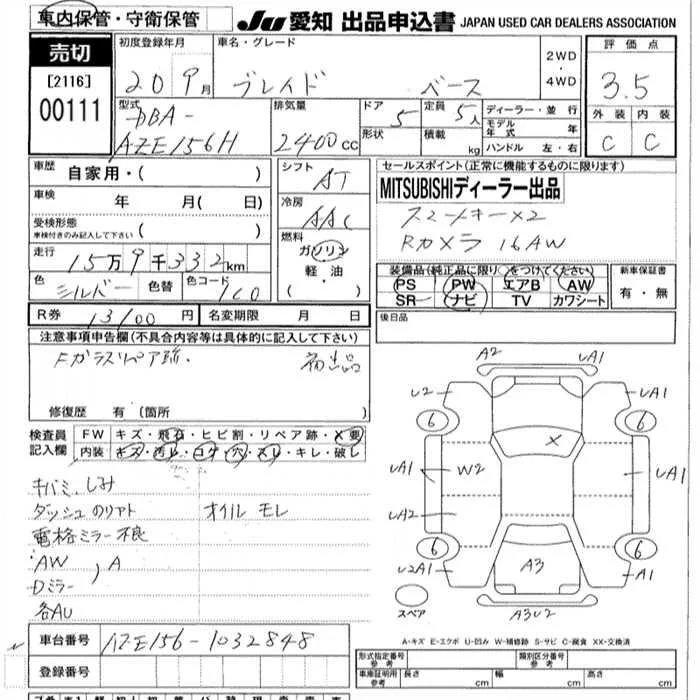 車内保管・守衛保管
JU 愛知 出品申込書 JAPAN USED CAR DEALERS ASSOCIATION
売切
[2116]
00111
初度登録年月
20 9月
車名・グレード
ブレイド ベース
2WD
・
4WD
評価点
3.5
外装 内装
C C
型式
DBA-
AZE156H
排気量
2400cc
ドア 5
形状
定員 5人
積載 kg
ディーラー・並行
モデル年式 年
ハンドル 左・右
車歴 自家用・( )
車検 年 月( 日)
受検形態
車検付きのみ記入して下さい ( )
走行 15万9千332km
色 シルバー 色替 色コード 1C0
シフト AT
冷房 AAC
燃料
ガソリン
軽・油
( ・ )
セールスポイント(正常に機能するものに限ります)
MITSUBISHIディーラー出品
スマートキー×2
Rカメラ 16AW
装備品(純正品に限り○をつけてください)
PS PW エアB AW
SR ナビ TV カワシート
新車保証書
有・無
後日品
R券 13100円 名変期限 月 日
注意事項申告欄(不具合内容等は具体的に記入して下さい)
Fガラスリペア跡. 初出品
修復歴 有(箇所 )
検査員記入欄
FW キズ・飛石・ヒビ割・リペア跡・X要
内装 キズ・汚レ・コゲ・穴・スレ・キレ・破レ
キバミ、しみ
ダッシュのリアト オイルモレ
電格ミラー不良
AW
Dミラー , A
各AU
A2 UA1
U2 UA1
6 6
X
UA1 W2 UA1
UA2
6 6
U2A1 A3 A1
スペア A3U2
A-キズ E-エクボ U-凹み W-補修跡 S-サビ C-腐食 XX-交換済
車台番号 AZE156-1032848
登録番号
形式指定番号 参考
類別区分番号 参考
車庫証明用 参考 長さ cm 幅 cm 高さ cm